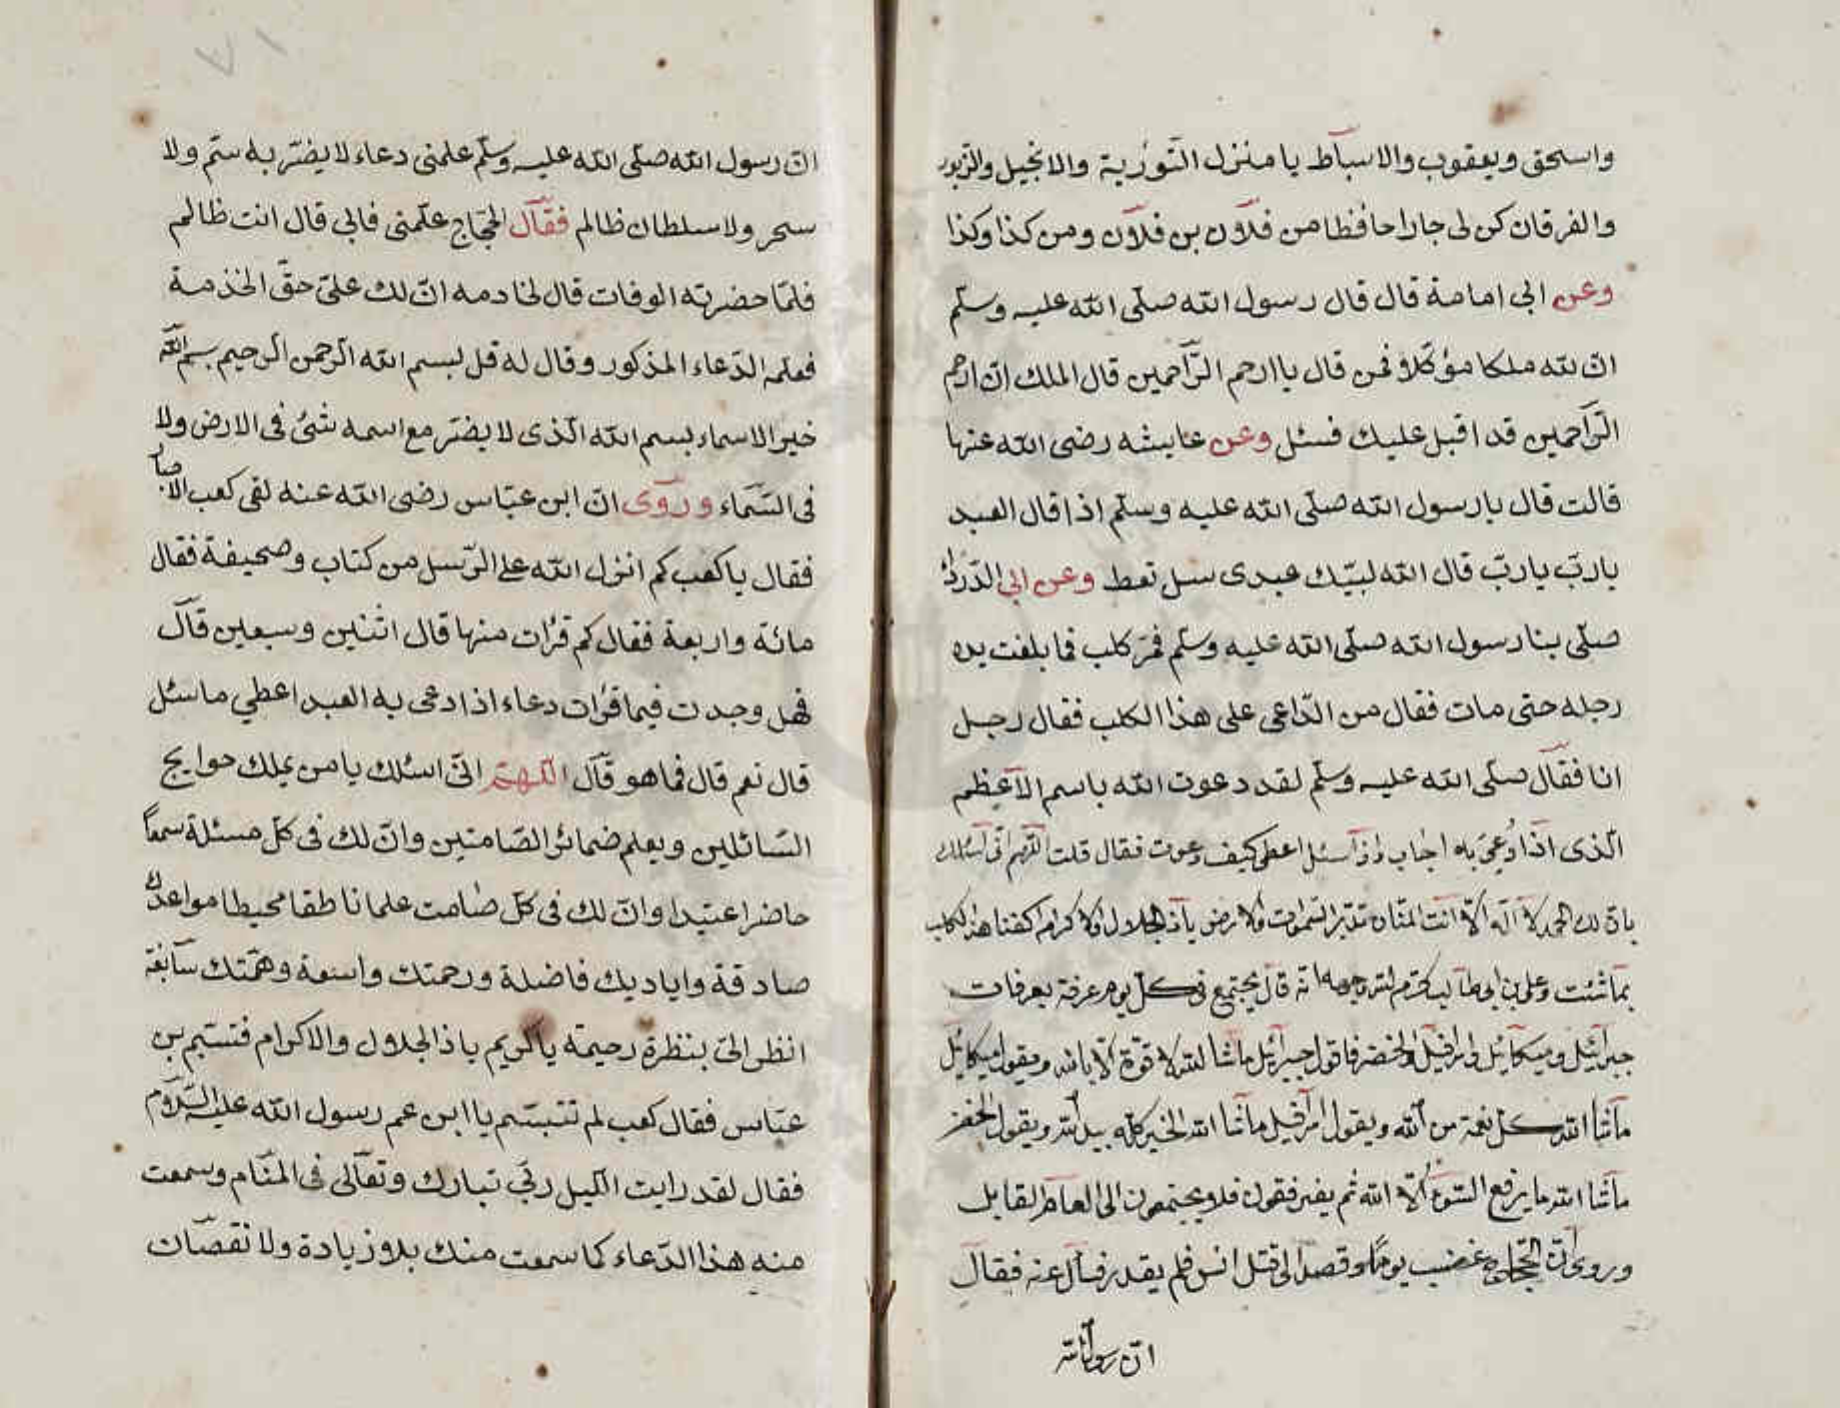 واسحق ويعقوب والاسباط يا منزل التورية والانجيل والزبور
والفرقان كن لى جارا حافظا من فلان بن فلان ومن كذا وكذا
وعن ابى امامة قال قال رسول الله صلّى الله عليه وسلّم
انّ لله ملكا مؤكّلا فمن قال يا ارحم الرّاحمين قال الملك انّ ارحم
الرّاحمين قد اقبل عليك فسئل وعن عايشه رضى الله عنها
قالت قال يا رسول الله صلّى الله عليه وسلّم اذا قال العبد
يا ربّ يا ربّ قال الله لبيّك عبدى سل تعط وعن ابى الدّرداء
صلّى بنا رسول الله صلّى الله عليه وسلّم فمرّ كلب فما بلغت يده
رجله حتى مات فقال من الدّاعى على هذا الكلب فقال رجل
انا فقال صلّى الله عليه وسلّم لقد دعوت الله باسم الاعظم
الّذى اذا دُعِىَ به اجاب واذا سئل اعطى كيف دعوت فقال قلت اللّهم انّى اسئلك
بانّ لك الحمد لا اله الّا انت المنّان السّموات والارض يا ذا الجلال والاكرام اكفنا هذا الكلب
بما شئت وعلى بن ابى طالب كرّم الله وجهه انّه قال يجتمع فى كلّ يوم عرفة بعرفات
جبرائيل وميكائيل واسرافيل والخضر جبرائيل ماشا الله لا قوّة الّا بالله ويقول ميكائيل
ماشا الله كلّ نعمة من الله ويقول اسرافيل ماشا الله الخير كلّه بيد الله ويقول الخضر
ماشا الله ما يرفع السّوء الّا الله ثم فلا يجتمعون الى العام القابل
وروى انّ الحجّاج غضب يوما وقصد الى قتل انس فلم يقدر فسأل عنه فقال
انّ رسول الله
٧١
انّ رسول الله صلّى الله عليه وسلّم علمنى دعاء لا يضرّ به سمّ ولا
سحر ولا سلطان ظالم فقال الحجّاج علّمنى فابى قال انت ظالم
فلمّا حضرته الوفات قال لخادمه انّ لك علىّ حقّ الخذمة
فعلمه الدّعاء المذكور وقال له قل بسم الله الرّحمن الرّحيم بسم الله
خير الاسماء بسم الله الّذى لا يضرّ مع اسمه شئ فى الارض ولا
فى السّماء وروى انّ ابن عبّاس رضى الله عنه لقى كعب الاحبار
فقال يا كعب كم انزل الله على الرّسل من كتاب وصحيفة فقال
مائة واربعة فقال كم قرات منها قال اثنين وسبعين قال
فهل وجدت فيما قرات دعاء اذا دعى به العبد اعطي ما سئل
قال نعم قال فما هو قال اللّهمّ انّى اسئلك يا من يملك حوايج
السّائلين ويعلم ضمائر الصّامتين وانّ لك فى كلّ مسئلة سمعاً
حاضرا عتيدا وانّ لك فى كلّ صامت علما ناطقا محيطا مواعدك
صادقة واياديك فاضلة ورحمتك واسعة وهمّتك سابغة
انظر الىّ بنظرة رحيمة يا كريم يا ذا الجلال والاكرام فتبسم بن
عبّاس فقال كعب لم تتبسّم يا ابن عم رسول الله عليه السّلام
فقال لقد رايت اللّيل ربّى تبارك وتعالى فى المنام وسمعت
منه هذا الدّعاء كما سمعت منك بلا زيادة ولا نقصان